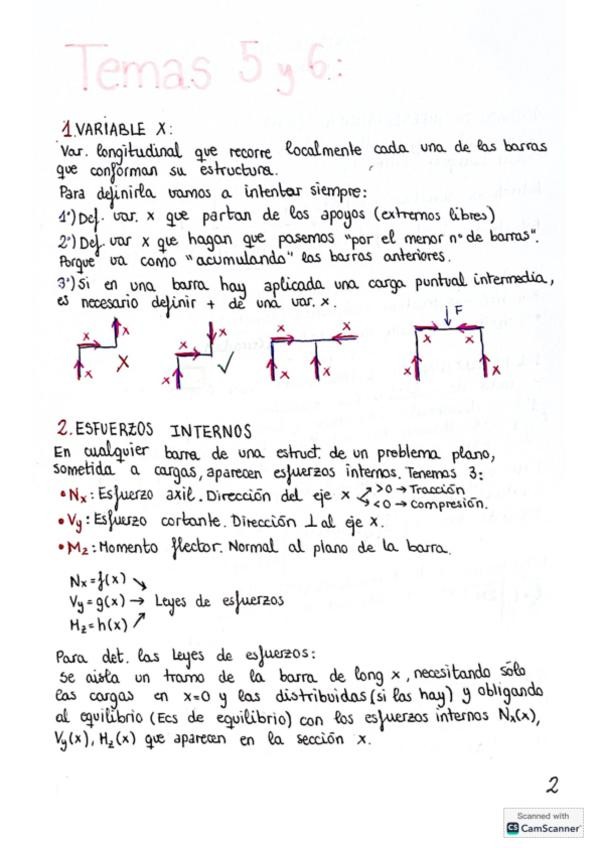 Temas 5 y 6:
1. VARIABLE X:
Var. longitudinal que recorre localmente cada una de las barras
que conforman su estructura.
Para definirla vamos a intentar siempre:
1º) Def. var. x que partan de los apoyos (extremos libres)
2º) Def. var x que hagan que pasemos "por el menor nº de barras".
Porque va como "acumulando" las barras anteriores.
3º) Si en una barra hay aplicada una carga puntual intermedia,
es necesario definir + de una var. x.
x x x X
x x x ✓
x x x x
F x x x x
2. ESFUERZOS INTERNOS
En cualquier barra de una estruct. de un problema plano,
sometida a cargas, aparecen esfuerzos internos. Tenemos 3:
• Nx: Esfuerzo axil. Dirección del eje x >0 → Tracción
<0 → Compresión.
• Vy: Esfuerzo cortante. Dirección ⊥ al eje x.
• Mz: Momento flector. Normal al plano de la barra.
Nx = f(x) ↘
Vy = g(x) → Leyes de esfuerzos
Mz = h(x) ↗
Para det. las leyes de esfuerzos:
Se aisla un tramo de la barra de long x, necesitando sólo
las cargas en x=0 y las distribuidas (si las hay) y obligando
al equilibrio (Ecs de equilibrio) con los esfuerzos internos Nx(x),
Vy(x), Mz(x) que aparecen en la sección x.
2
Scanned with
CS CamScanner